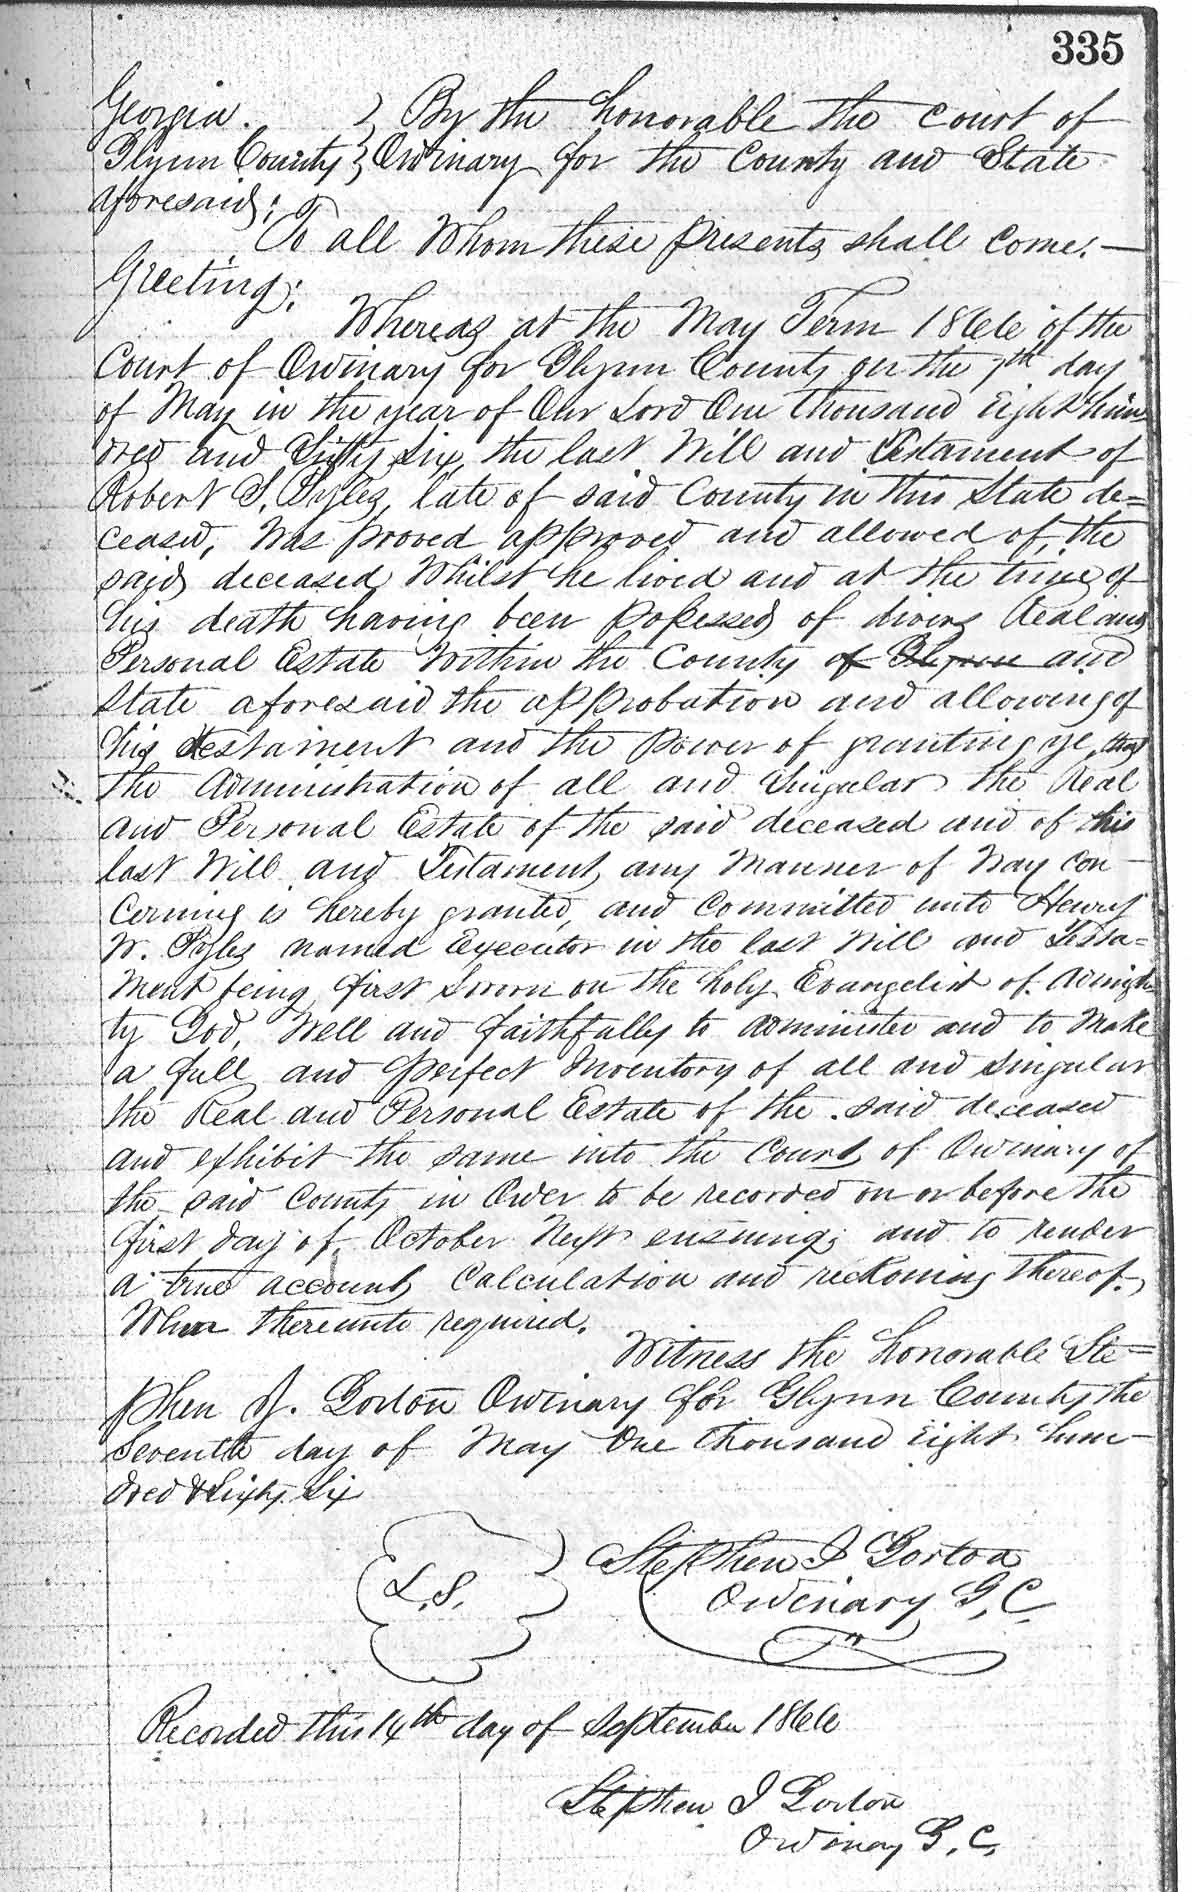 335
Georgia. } By the honorable the Court of
Glynn County } Ordinary for the County and State
aforesaid:
To all Whom these presents shall come:—
Greeting:
Whereas at the May Term 1866 of the
Court of Ordinary for Glynn County on the 7th day
of May in the year of Our Lord One thousand Eight hun-
dred and Sixty Six, the last Will and Testament of
Robert S. Pyles, late of said County in this State de=
ceased, Was proved approved and allowed of, the
said deceased Whilst he lived and at the time of
his death having been possessed of divers Real and
Personal Estate Within the County of Glynn and
State aforesaid the approbation and allowing of
his testament and the power of granting
the Administration of all and Singular the Real
and Personal Estate of the said deceased and of his
last Will and Testament any Manner of Way con-
cerning is hereby granted, and Committed unto Henry
W. Pyles named Executor in the last Will and Testa=
ment being first Sworn on the holy Evangelist of Almigh-
ty God, Well and faithfully to Administer and to Make
a full and perfect Inventory of all and Singular
the Real and Personal Estate of the said deceased
and exhibit the same into the Court of Ordinary of
the said County in Order to be recorded on or before the
first day of October Next ensuing; and to render
a true account Calculation and reckoning thereof,
When thereunto required.
Witness the honorable Ste=
phen J. Gorton Ordinary for Glynn County the
Seventh day of May One thousand Eight hun-
dred & Sixty Six
L.S.
Stephen J Gorton
Ordinary G. C.
Recorded this 14th day of September 1866
Stephen J Gorton
Ordinary G. C.